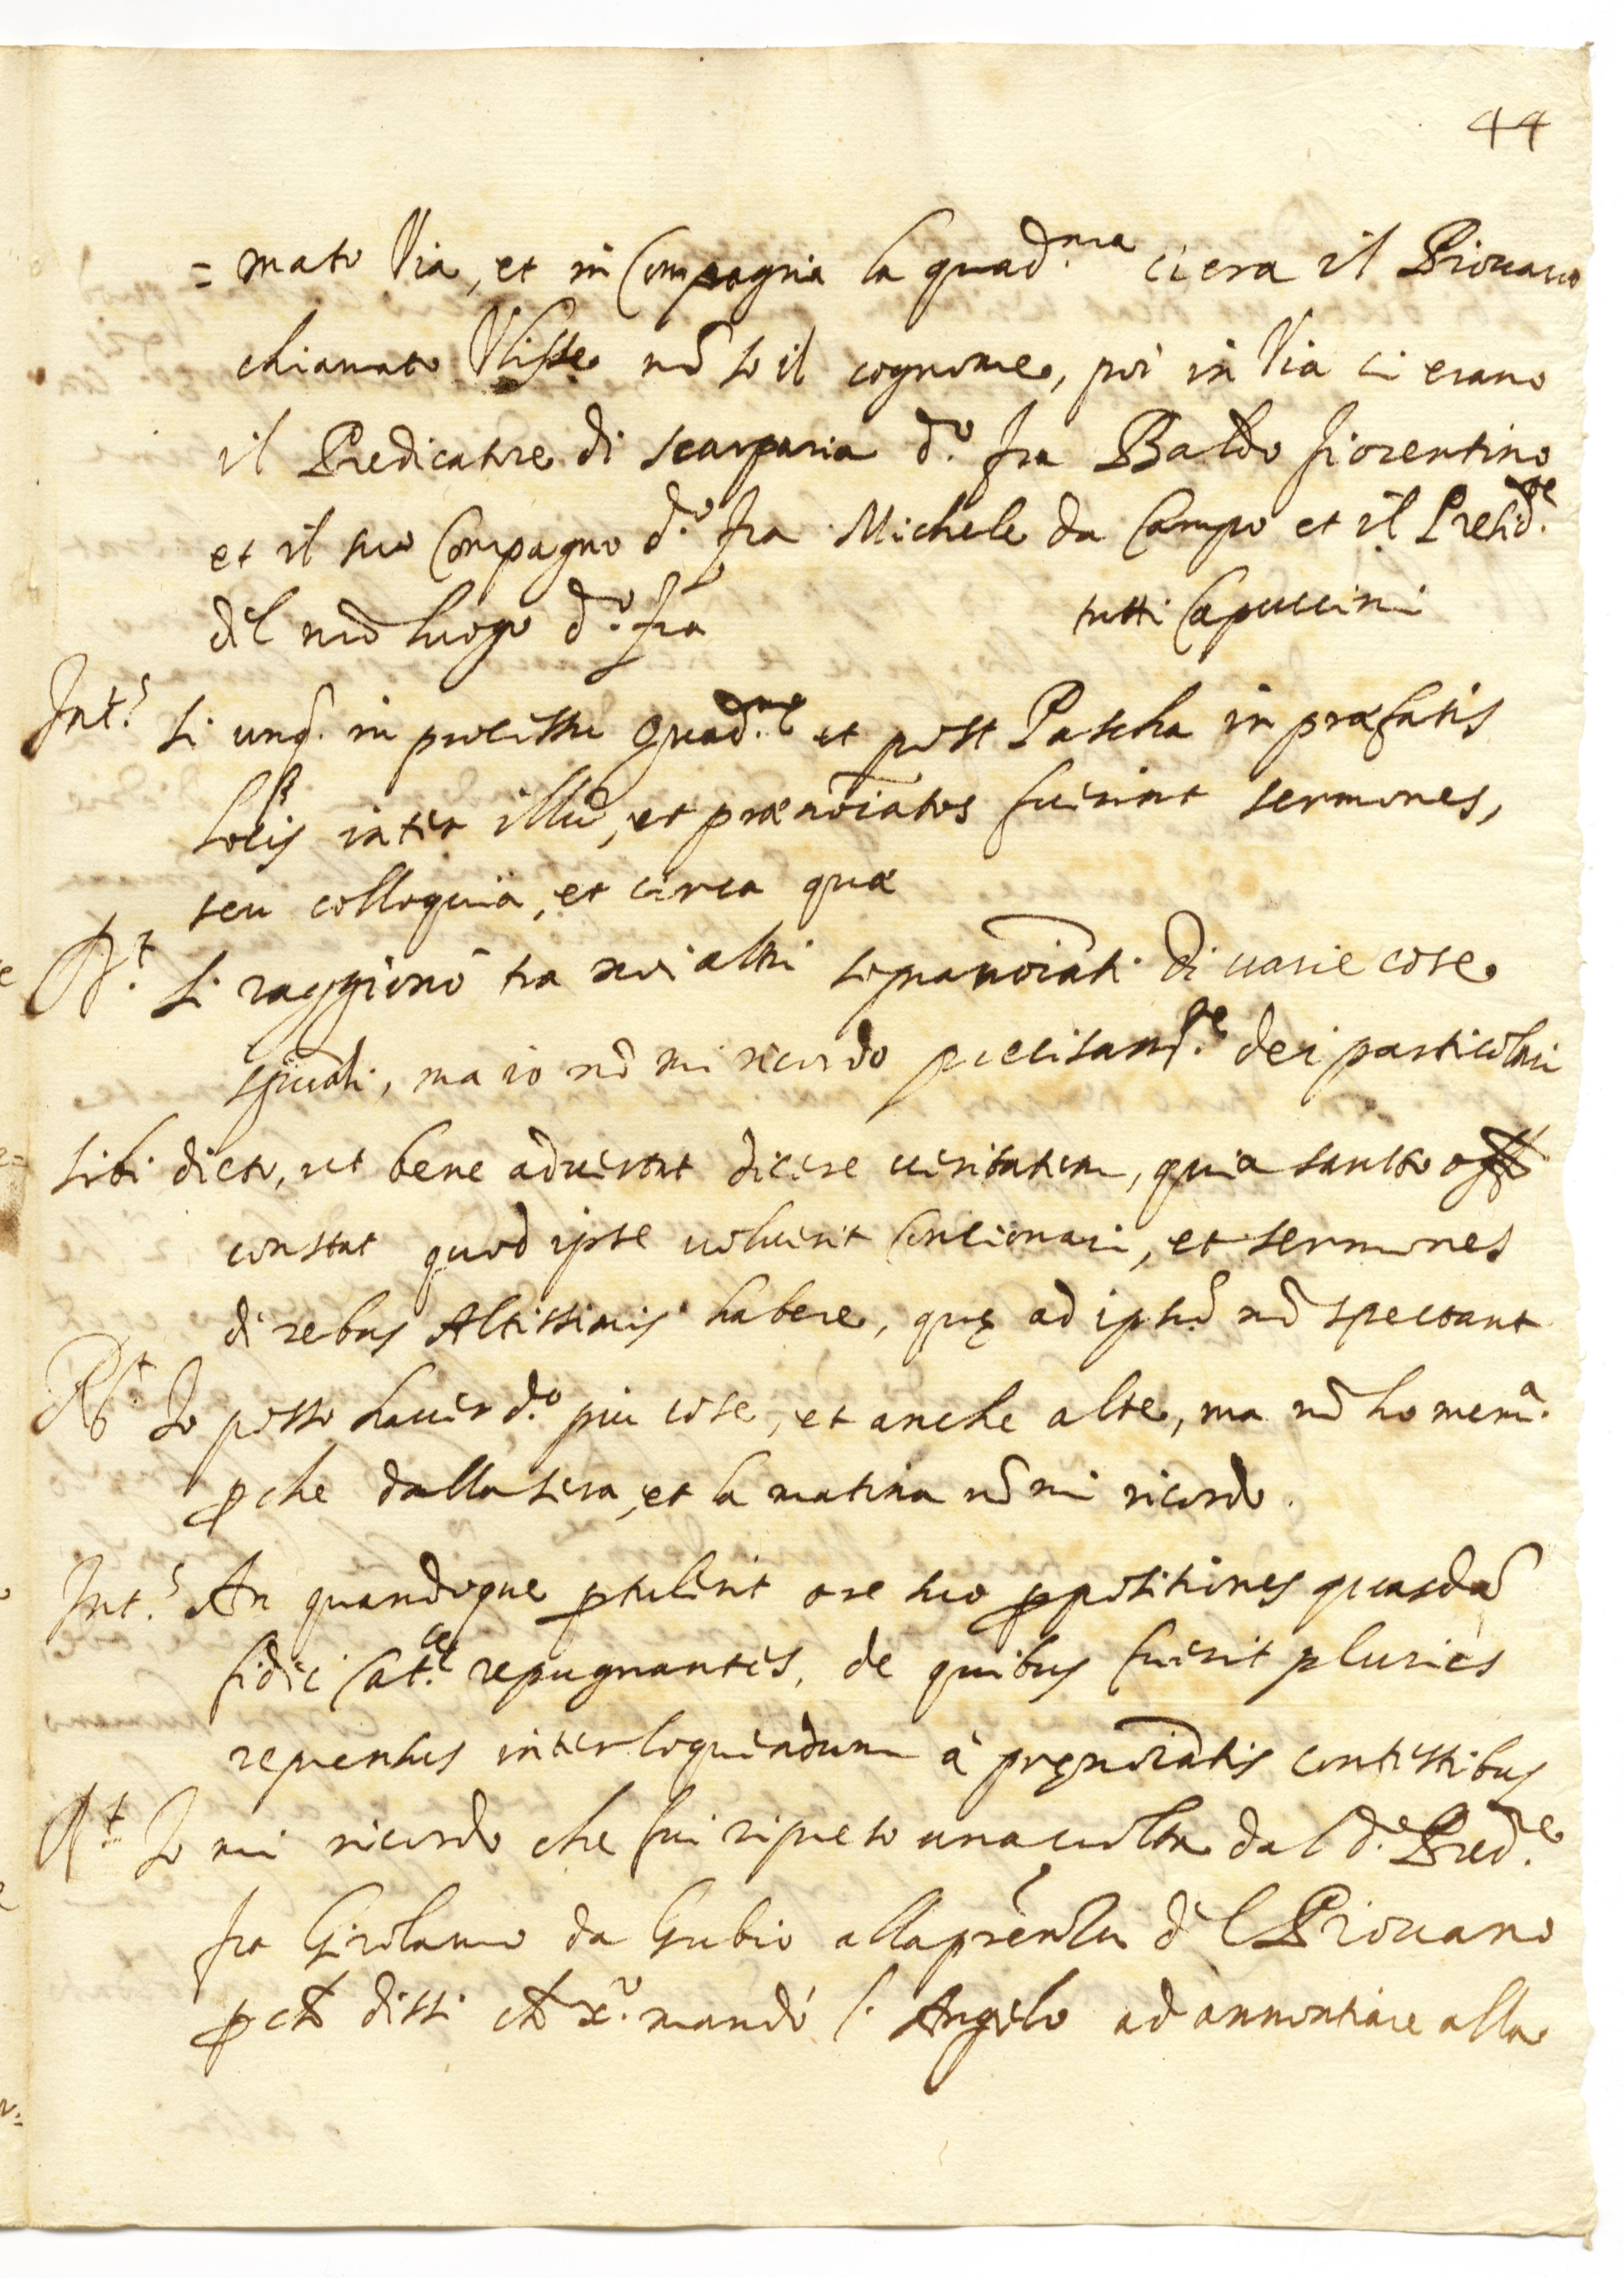 44
= mato Via, et in Compagnia la quad.ma ci era il Piouano
chiamato Ulisse nõ so il cognome, poi in Via ci erano
il Predicatore di scarparia d.o fra Baldo fiorentino
et il suo Compagno d.o fra Michele da Campo et il Presid.te
del nrõ luogo d.o fra tutti Capuccini
Int.s Si unq. in processu quad.me et post Pascha in præfatis
locis inter illũ, et prænoĩatos fuerint sermones,
seu colloquia, et circa quæ
R.t Si raggionò tra noi altri sopranoĩati di uarie cose
spũali, ma io nõ mi ricordo precisam.te dei particolari
sibi dicto, ut bene aduertat dicere ueritatem, quia sancto off.
constat quod ipse uoluerit concionari, et sermones
di rebus Altissimis habere, quę ad ipsũ nõ spectant
R.t Io posso hauer d.o più cose, et anche alte, ma nõ ho mem.a
ꝑche dalla sera, et la matina nõ mi ricordo.
Int.s An quandoque ꝓtulerit ore suo ꝓpositiones quasdã
fidei Cat.ce repugnantes, de quibus fuerit pluries
reprensus interloquendum à pręnoĩatis contestibus
R.t Io mi ricordo che fui ripreso una uolta dal d.o Pred.e
fra Girolamo da Gubio alla prẽntia del Piouano
ꝑch dissi ch x.o mandò l. Angelo ad annontiare alla